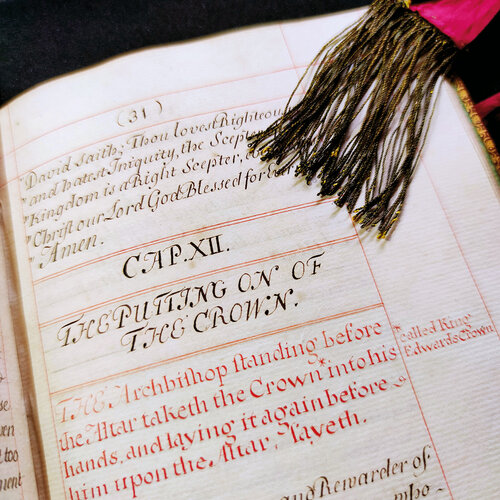 (31)
David saith; Thou lovest Righteou
" and hatest Iniquity, the Scepte
" Kingdom is a Right Scepter, 
" Christ our Lord God Blessed for E
" Amen.
CAP. XII.
THE PUTTING ON OF
THE CROWN.
THE Archbishop standing before
the Altar taketh the Crown* into his
hands, and laying it again before
him upon the Altar, Sayeth.
*called King
Edwards Crown
and Rewarder of
who
ven
too
ment